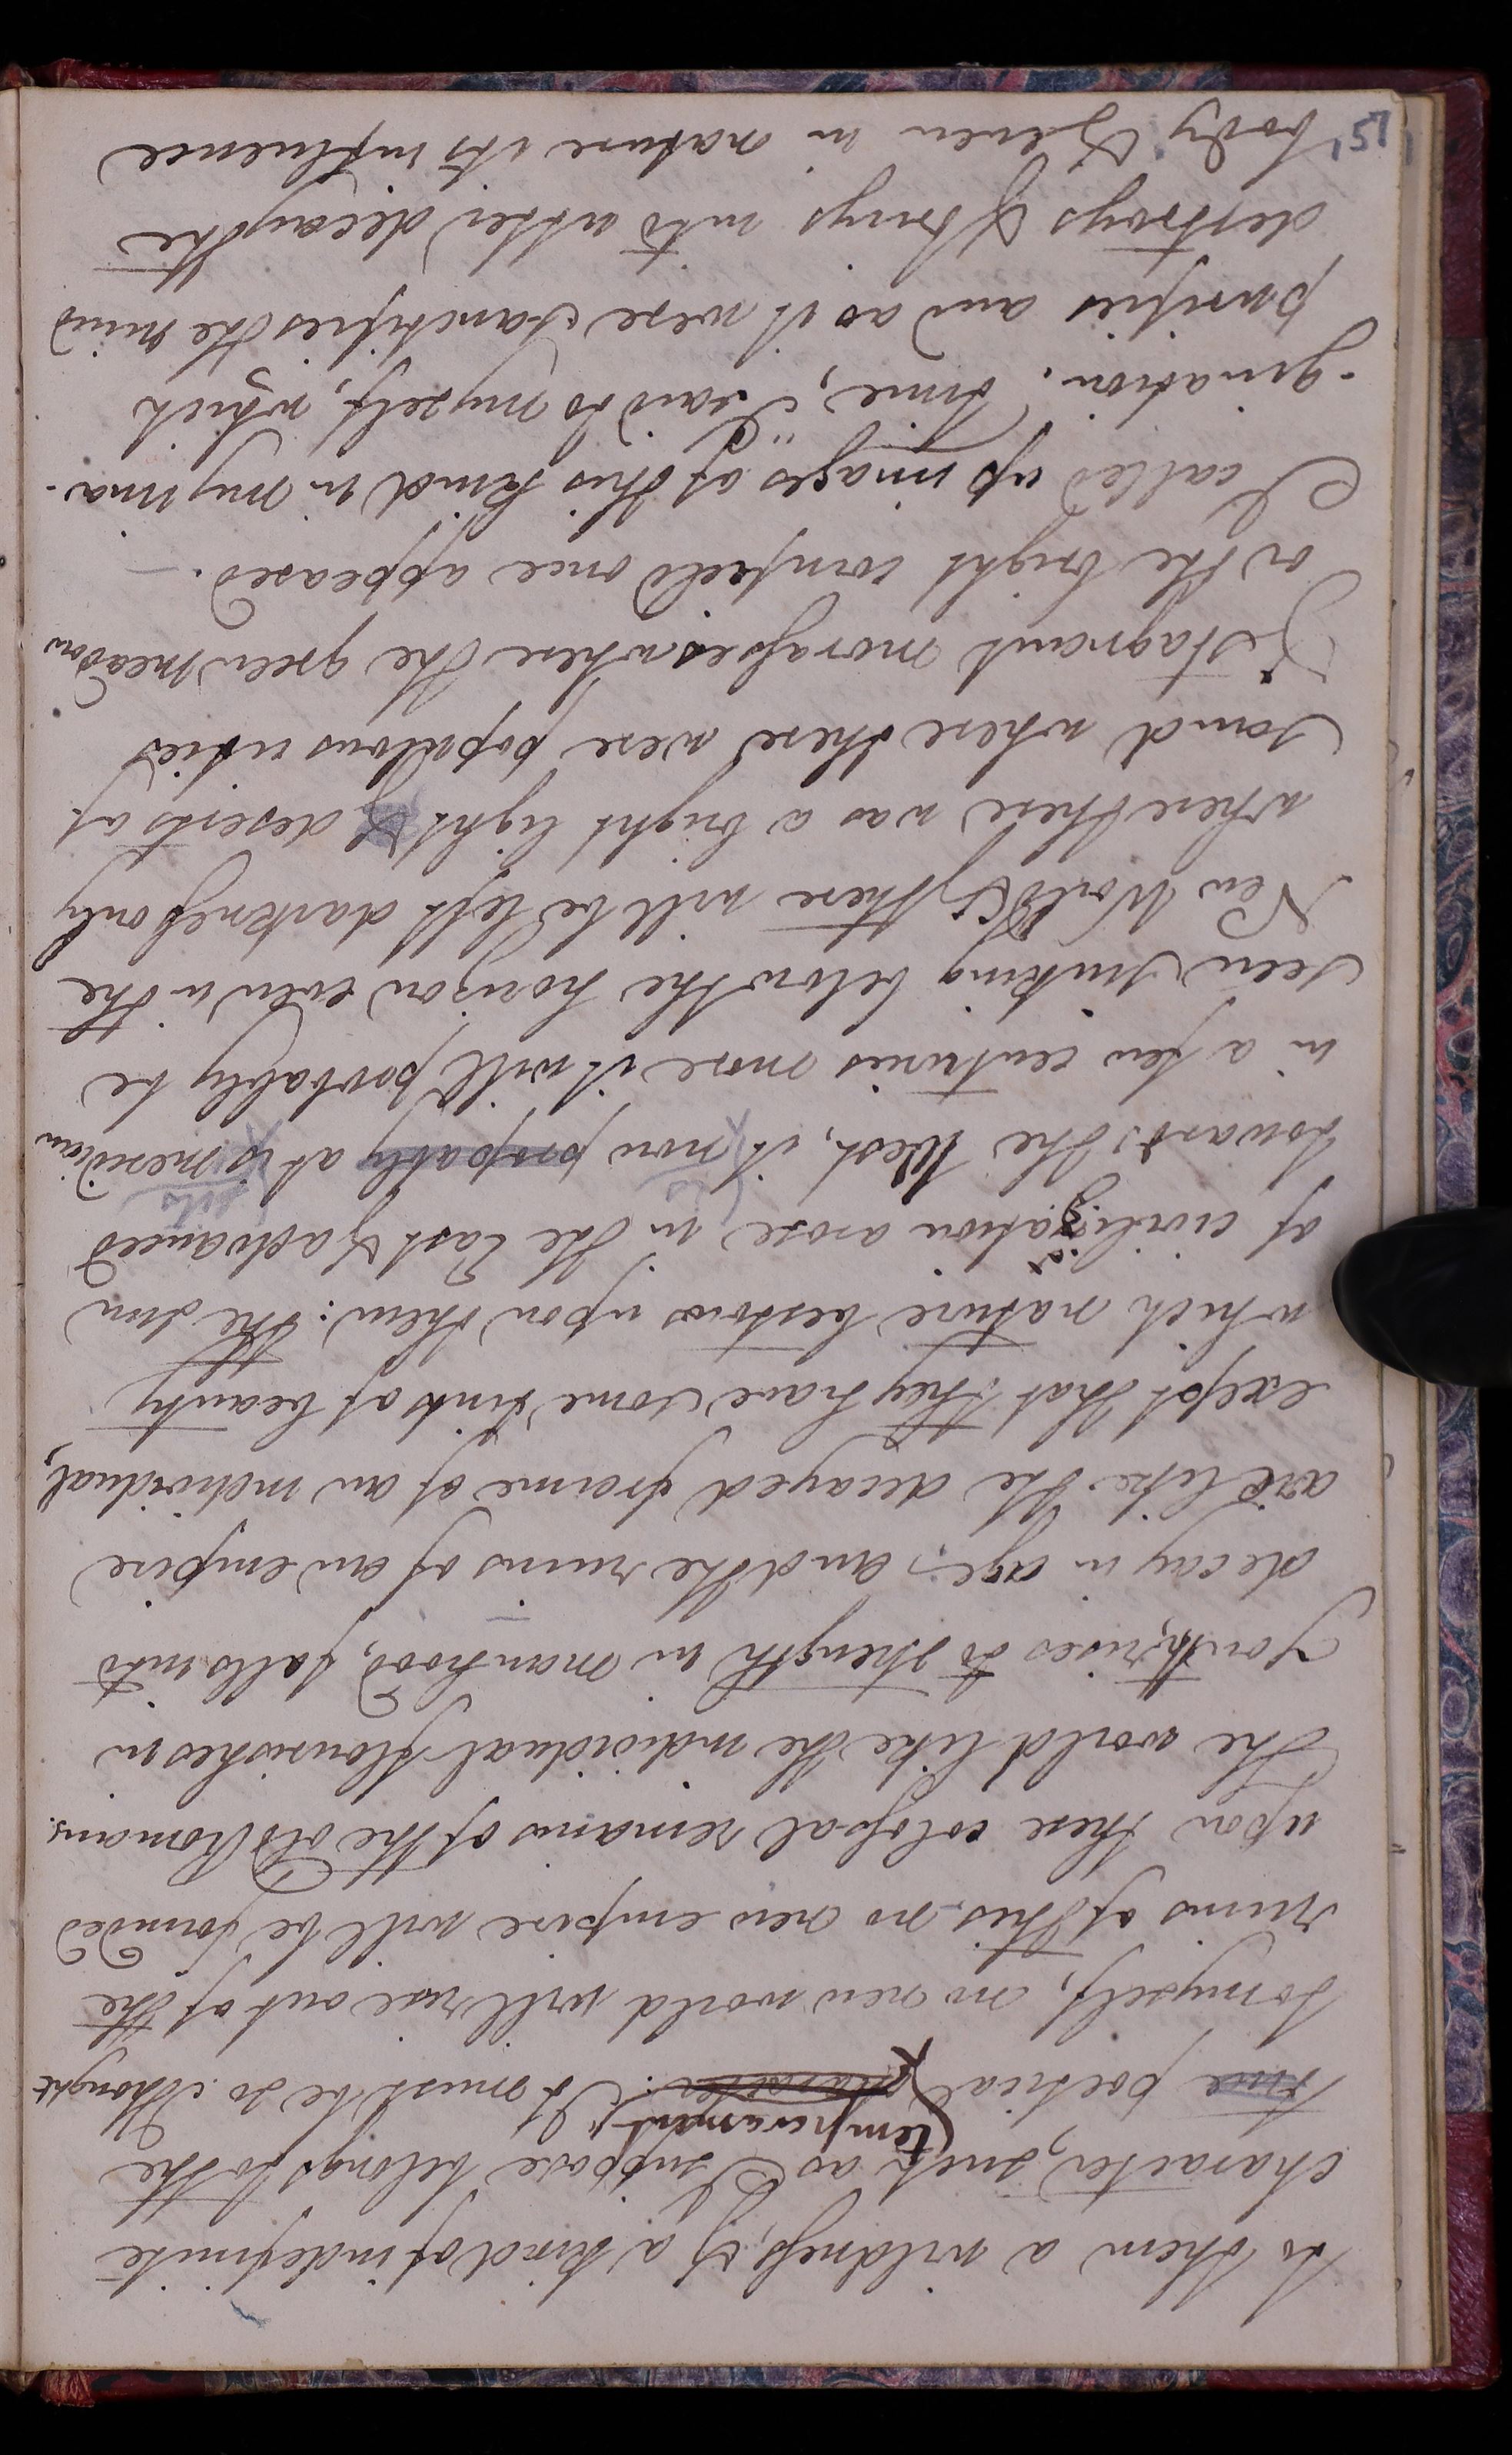 to them a wildness, & a kind of indefinite
character, such as I suppose belongs to the
temperament
true poetical character. It must be so I thought
to myself, no new world will rise out of the
ruins of this no new empire will be founded
upon these colossal remains of the old Romans.
The world like the individual flourishes in
Youth, rises to strength in manhood, falls into
decay in age; and the ruins of an empire
are like the decayed frame of an individual,
except that they have some tints of beauty
which nature bestows upon them: The sun
of civilization arose in the East & advanced
is its
towards the West, it now propably at is meridian
in a few centuries more it will probably be
seen sinking below the horizon even in the
New World & there will be left darkness only
where there was a bright light & deserts of
sand where there were populous cities
& stagnant morasses where the green meadow
or the bright cornfield once appeared. —
I called up images of this kind in my ima-
-gination. "Time, I said to myself, which
purifies and as it were sanctifies the mind
destroys & brings into utter decay the
body & even in nature its influence
151